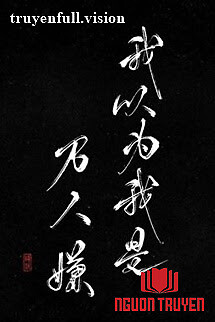 truyenfull.vision
我以为我是
万人嫌
NGUON TRUYEN